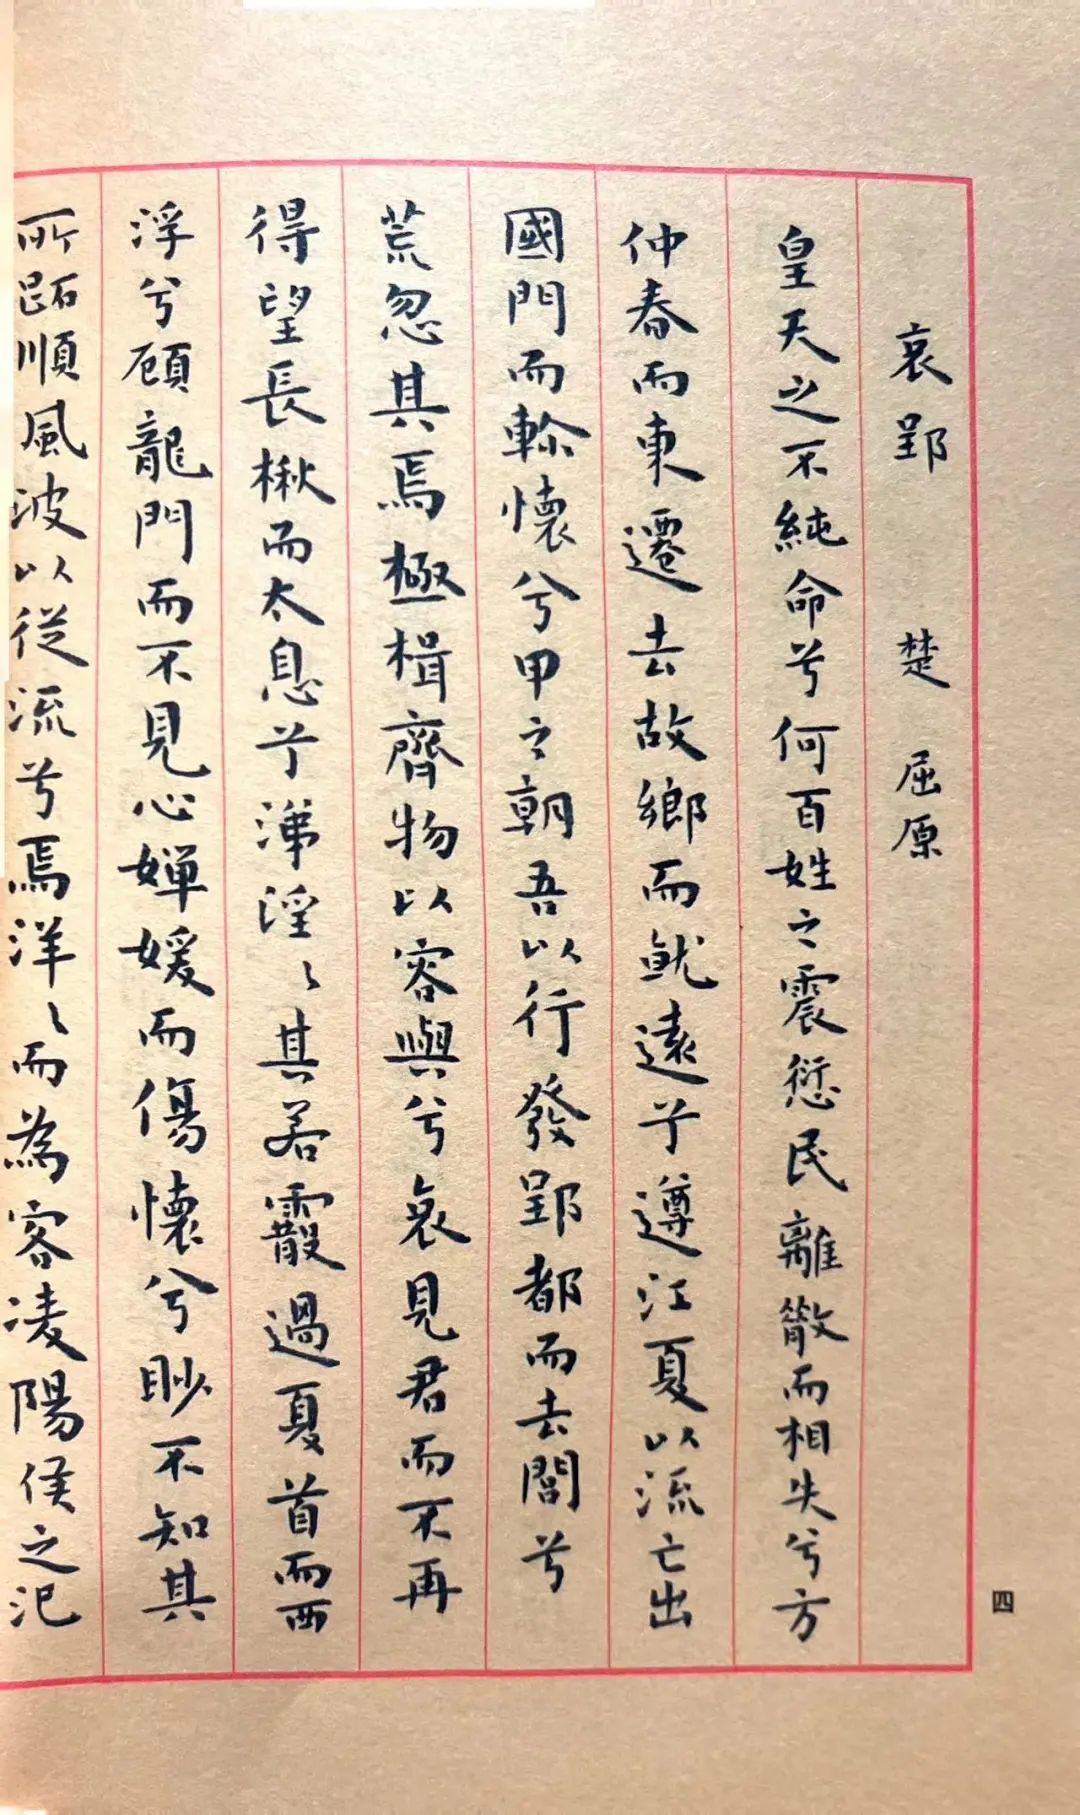 哀郢 楚 屈原
皇天之不純命兮何百姓之震愆民離散而相失兮方
仲春而東遷去故鄉而就遠兮遵江夏以流亡出
國門而軫懷兮甲之朝吾以行發郢都而去閭兮
荒忽其焉極楫齊物以容與兮哀見君而不再
得望長楸而太息兮涕淫〻其若霰過夏首而西
浮兮顧龍門而不見心嬋媛而傷懷兮眇不知其
所跖順風波以從流兮焉洋〻而為客凌陽侯之氾
四